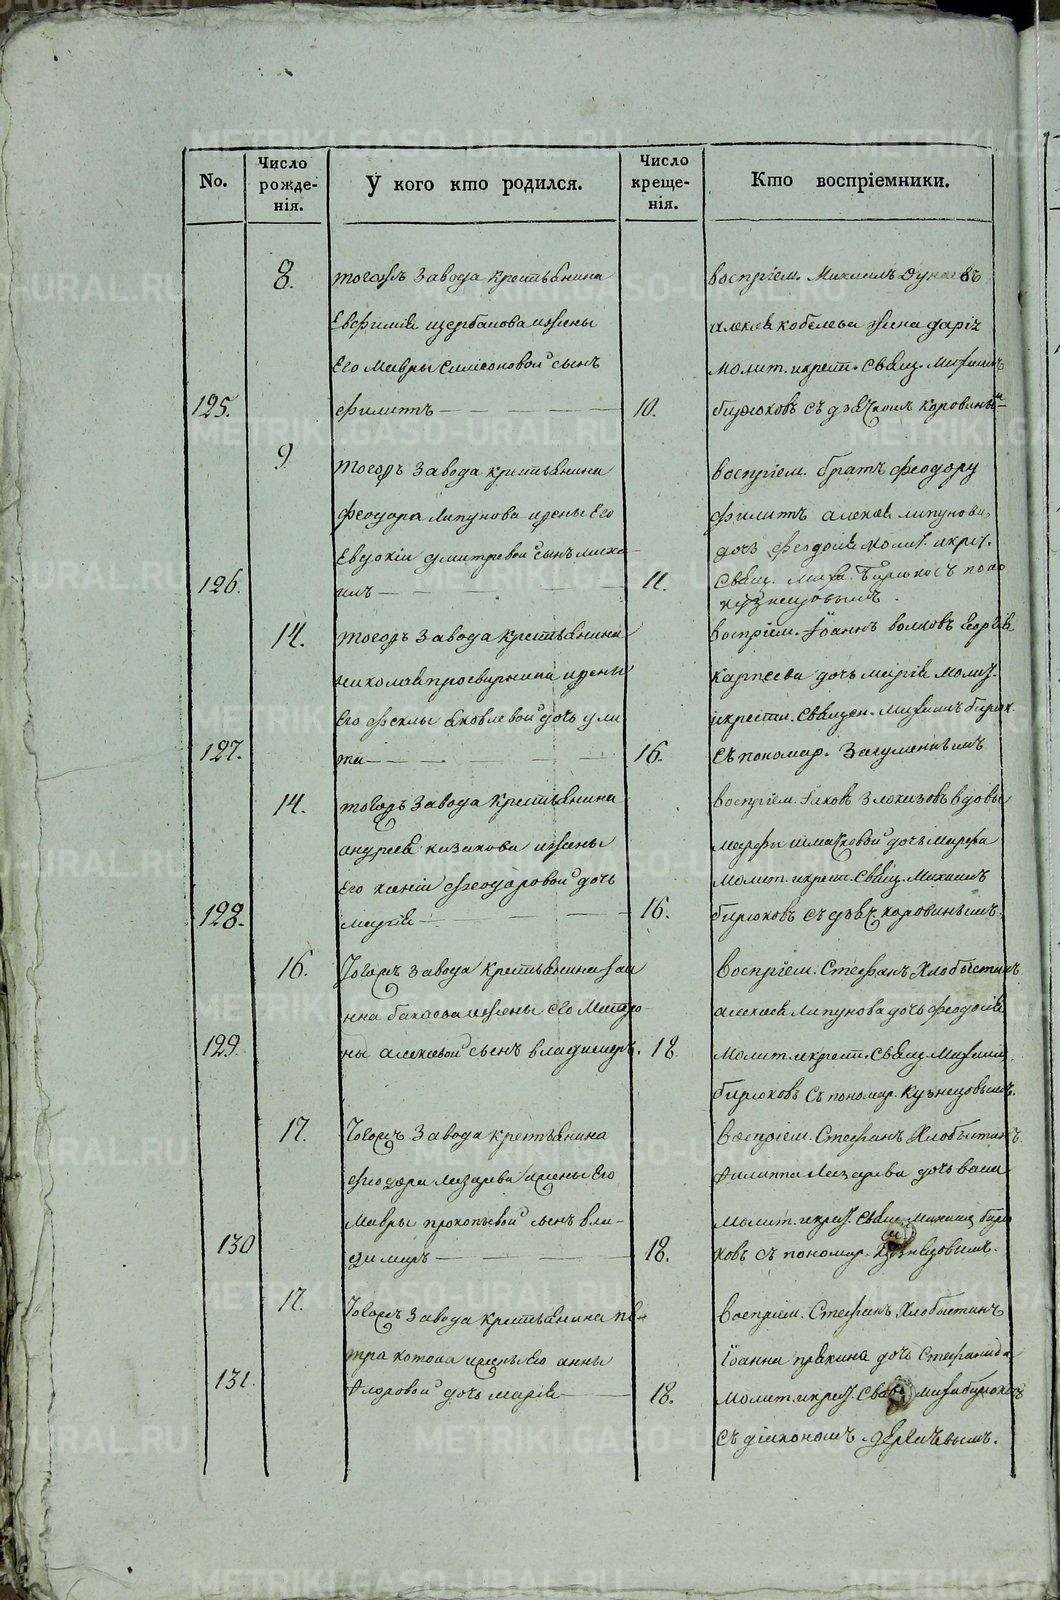 No.
Число рожденія.
У кого кто родился.
Число крещенія.
Кто воспріемники.
8.
тогожъ завода крестьянина
Евфимія щербакова ижены
Его Мавры Симеоновой сынъ
125.
филитъ
10.
воспріем. Михаилъ Дунаевъ
алексея кобелева жена дарія
молит. икрест. Свящ. Михаилъ
бирюковъ съ дьячкомъ коровинымъ
9
тогожъ завода крестьянина
феодора липунова ижены Его
Евдокіи дмитревой сынъ миха-
126.
илъ
11.
воспріем. братъ феодору
филитъ алексея липунова
дочь феодосія молит. икрест.
Свящ. Миха. Бирюковъ с поно
кузнецовымъ.
14.
тогожъ завода крестьянина
николая просвирнина ижены
Его феклы яковлевой дочь ули
127.
та
16.
воспріем. Іоаннъ волковъ георгія
карпеева дочь марія молит.
икрести. священ. Михаилъ бирюк.
съ пономар. Загуменнымъ
14.
тогожъ завода крестьянина
андрея казакова ижены
Его ксеніи феодоровой дочь
128.
марія
16.
воспріем. Іаковъ злоказовъ вдовы
марфы шмаковой дочь марфа
молит. икрест. Свящ. Михаилъ
бирюковъ съ дьяч. коровинымъ.
16.
Тогожъ завода крестьянина Іоа
нна ижены его Матро-
129.
ны алексеевой сынъ владимеръ.
18
воспріем. Стефанъ Хлобыстинъ
алексея липунова дочь феодосія
молит. икрест. Свящ. Михаил.
бирюковъ съ пономар. Кузнецовымъ.
17.
Тогожъ завода крестьянина
феодора Лазарева ижены Его
Мавры прокопьевой сынъ вла-
130
димиръ
18.
воспріем. Стефанъ Хлобыстинъ
Филиппа Лазарева дочь васи
молит. икрест. Свящ. Михаил бирю
ковъ съ пономар. кузнецовымъ.
17.
Тогожъ завода крестьянина пе-
тра котова ижены Его анны
131.
Флоровой дочь марія
18.
воспріем. Стефанъ Хлобыстинъ
Іоанна пряхина дочь Стефанида
молит. икрест. Свящ миха бирюковъ
съ діакономъ дерягевымъ.
METRIKI.GASO-URAL.RU